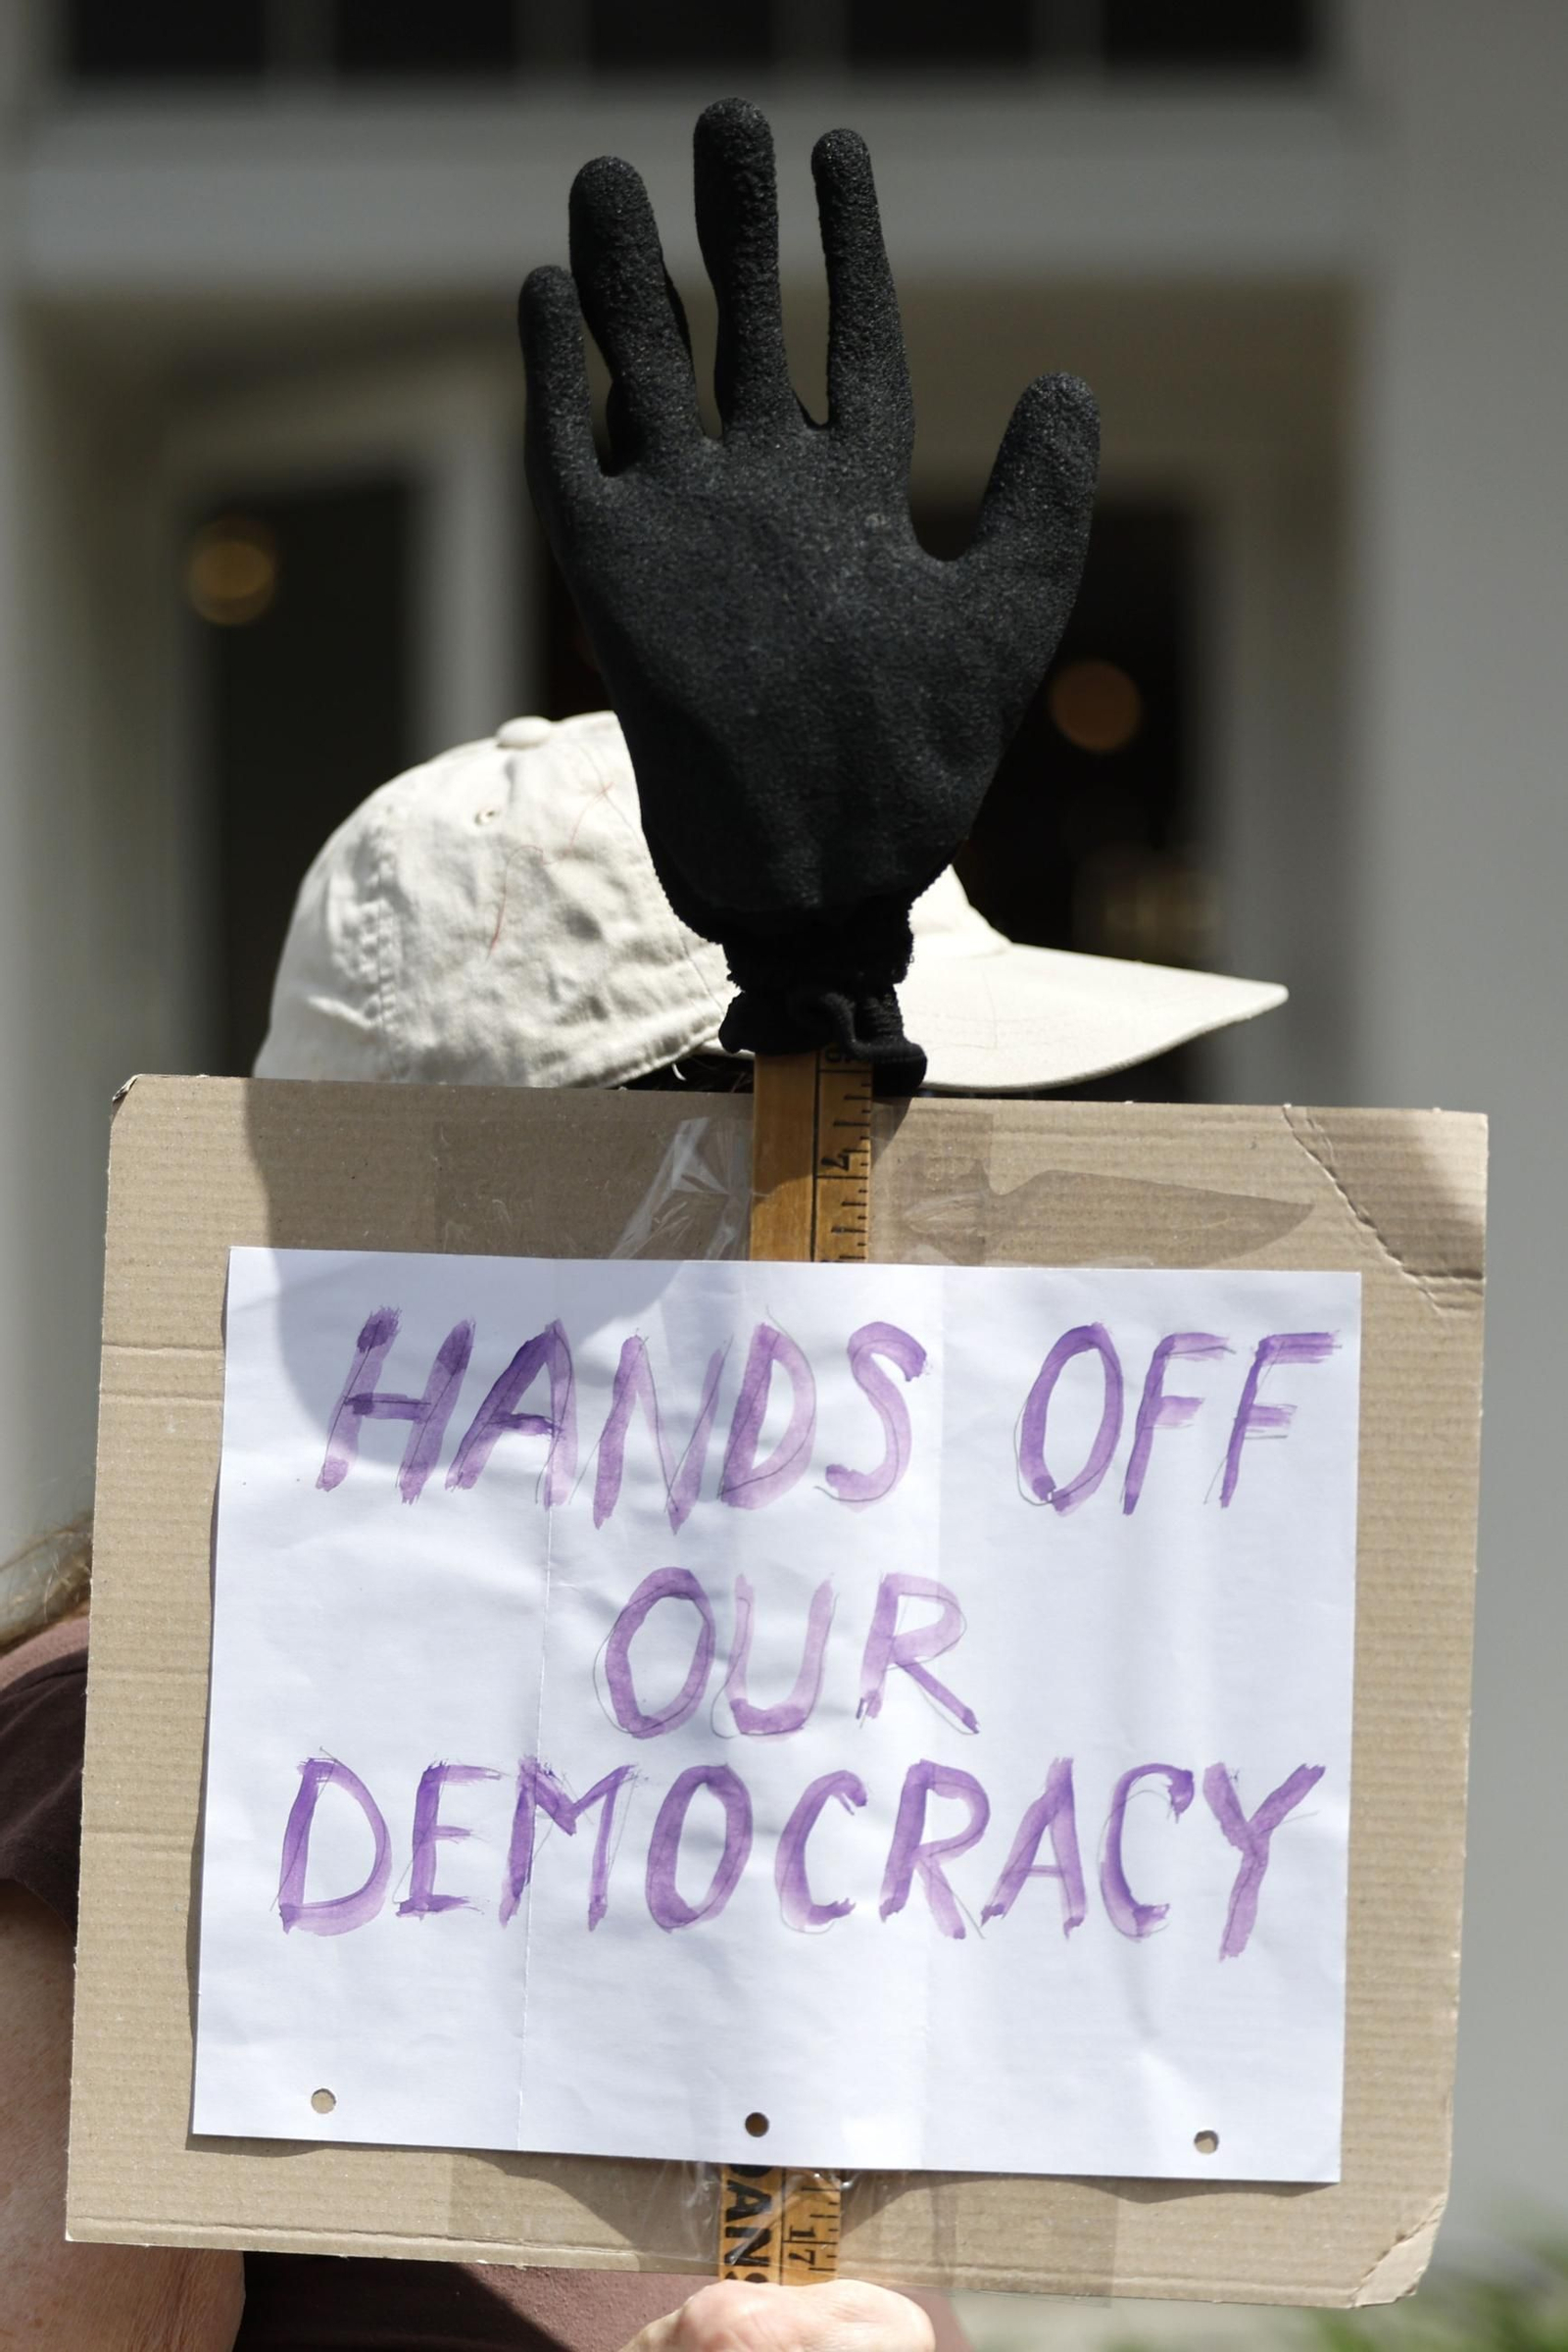 7
HANDS OFF
OUR
DEMOCRACY
17